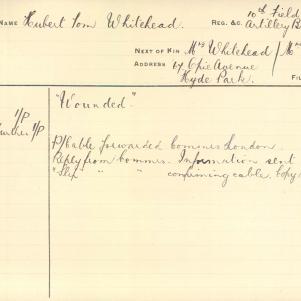 NAME Hubert Tom Whitehead. REG. &C. 10th Field
Artillery B
NEXT OF KIN Mrs Whitehead / Mr
ADDRESS 17 Opie Avenue
Hyde Park. FI
"Wounded."
1/P
further 1/P
P/Cable forwarded Commrs London.
Reply from Commrs. Information sent
"Slip" " " confirming cable. Copy